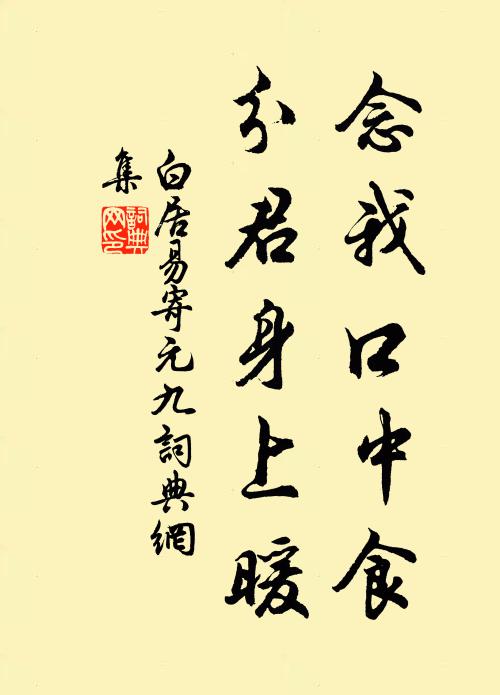 念我口中食
分君身上暖
白居易寄元九詞典網
集
詞典
网印